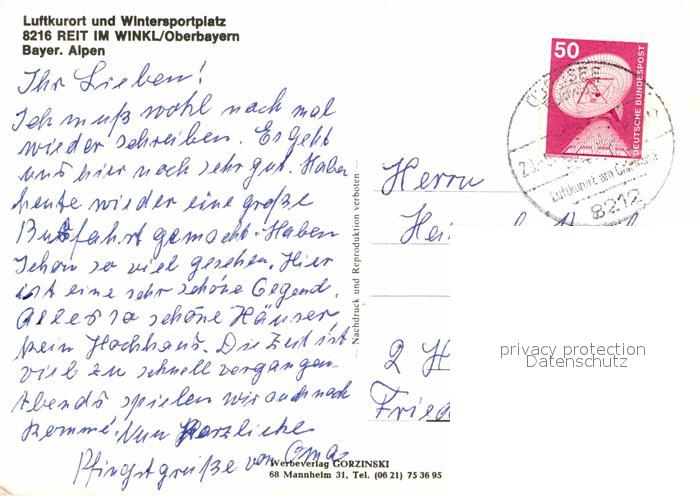 Luftkurort und Wintersportplatz
8216 REIT IM WINKL/Oberbayern
Bayer. Alpen
Ihr Lieben!
Ich muß wohl noch mal
wieder schreiben. Es geht
uns hier noch sehr gut. Haben
heute wieder eine große
Busfahrt gemacht. Haben
schon so viel gesehen. Hier
ist eine sehr schöne Gegend.
Alles so schöne Häuser,
kein Hochhaus. Die Zeit ist
viel zu schnell vergangen
Abends spielen wir auch noch
Rommé. Nun Herzliche
Pfingstgrüße von Oma
Werbeverlag GORZINSKI
68 Mannheim 31, Tel. (06 21) 75 36 95
Nachdruck und Reproduktion verboten
50
DEUTSCHE BUNDESPOST
ÜBERSEE
Luftkurort am Chiemsee
8212
Herrn
2 H
Fried
privacy protection
Datenschutz